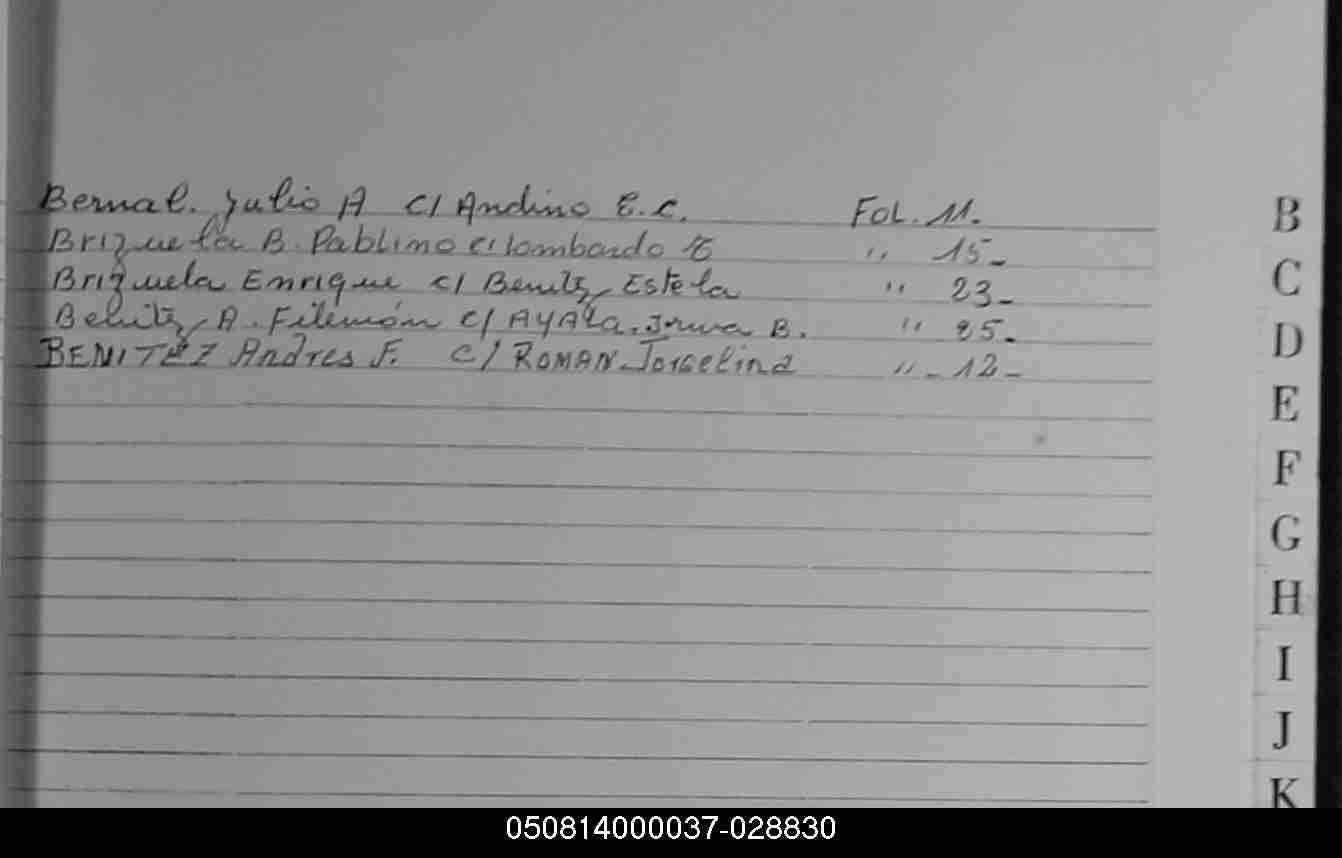 Bernal. Julio A c/ Andino E.C. Fol. 11.
Brizuela B. Pablino c/ Lombardo E " 15-
Brizuela Enrique c/ Benitz Estela " 23-
Benitz A. Filemón c/ AyAla. Irma B. " 25.
BENITEZ Andres F. c/ ROMAN Jorgelina " - 12 -
B
C
D
E
F
G
H
I
J
K
050814000037-028830